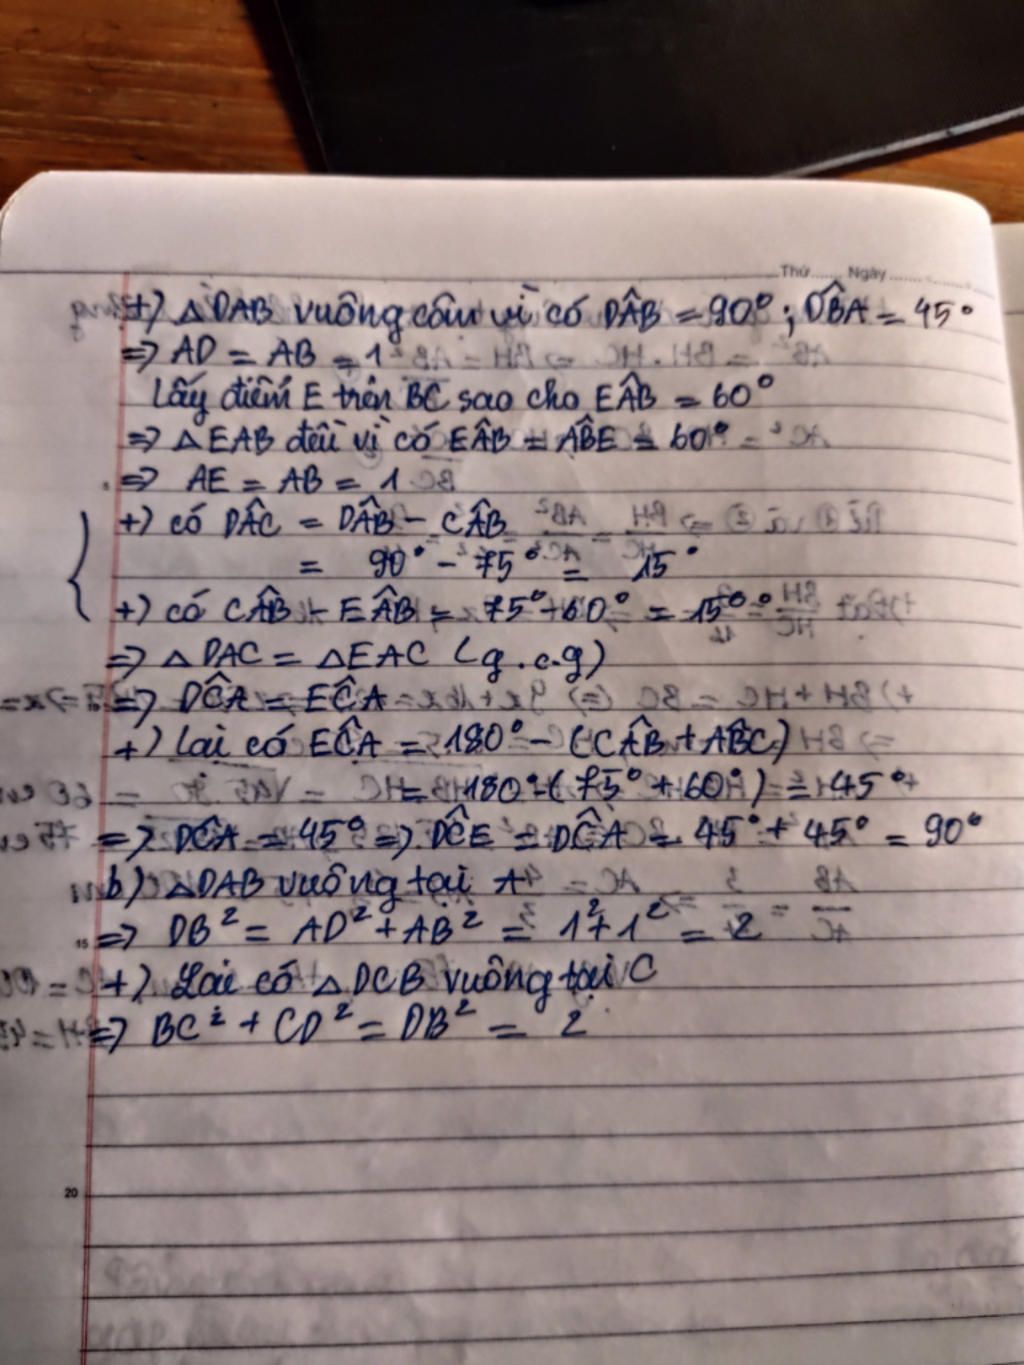 Thứ...... Ngày ......
+) △DAB vuông cân vì có DÂB = 90° ; DB̂A = 45°
=> AD = AB = 1
Lấy điểm E trên BC sao cho EÂB = 60°
=> △EAB đều vì có EÂB = AB̂E = 60°
=> AE = AB = 1
+) có DÂC = DÂB - CÂB
= 90° - 75° = 15°
+) có CÂB - EÂB = 75° - 60° = 15°
=> △DAC = △EAC (g.c.g)
=> DĈA = EĈA
+) Lại có EĈA = 180° - (CÂB + AB̂C)
= 180° - (75° + 60°) = 45°
=> DĈA = 45° => DĈE = DĈA = 45° + 45° = 90°
b) △DAB vuông tại A
15 => DB² = AD² + AB² = 1² + 1² = 2
+) Lại có △DCB vuông tại C
=> BC² + CD² = DB² = 2
20